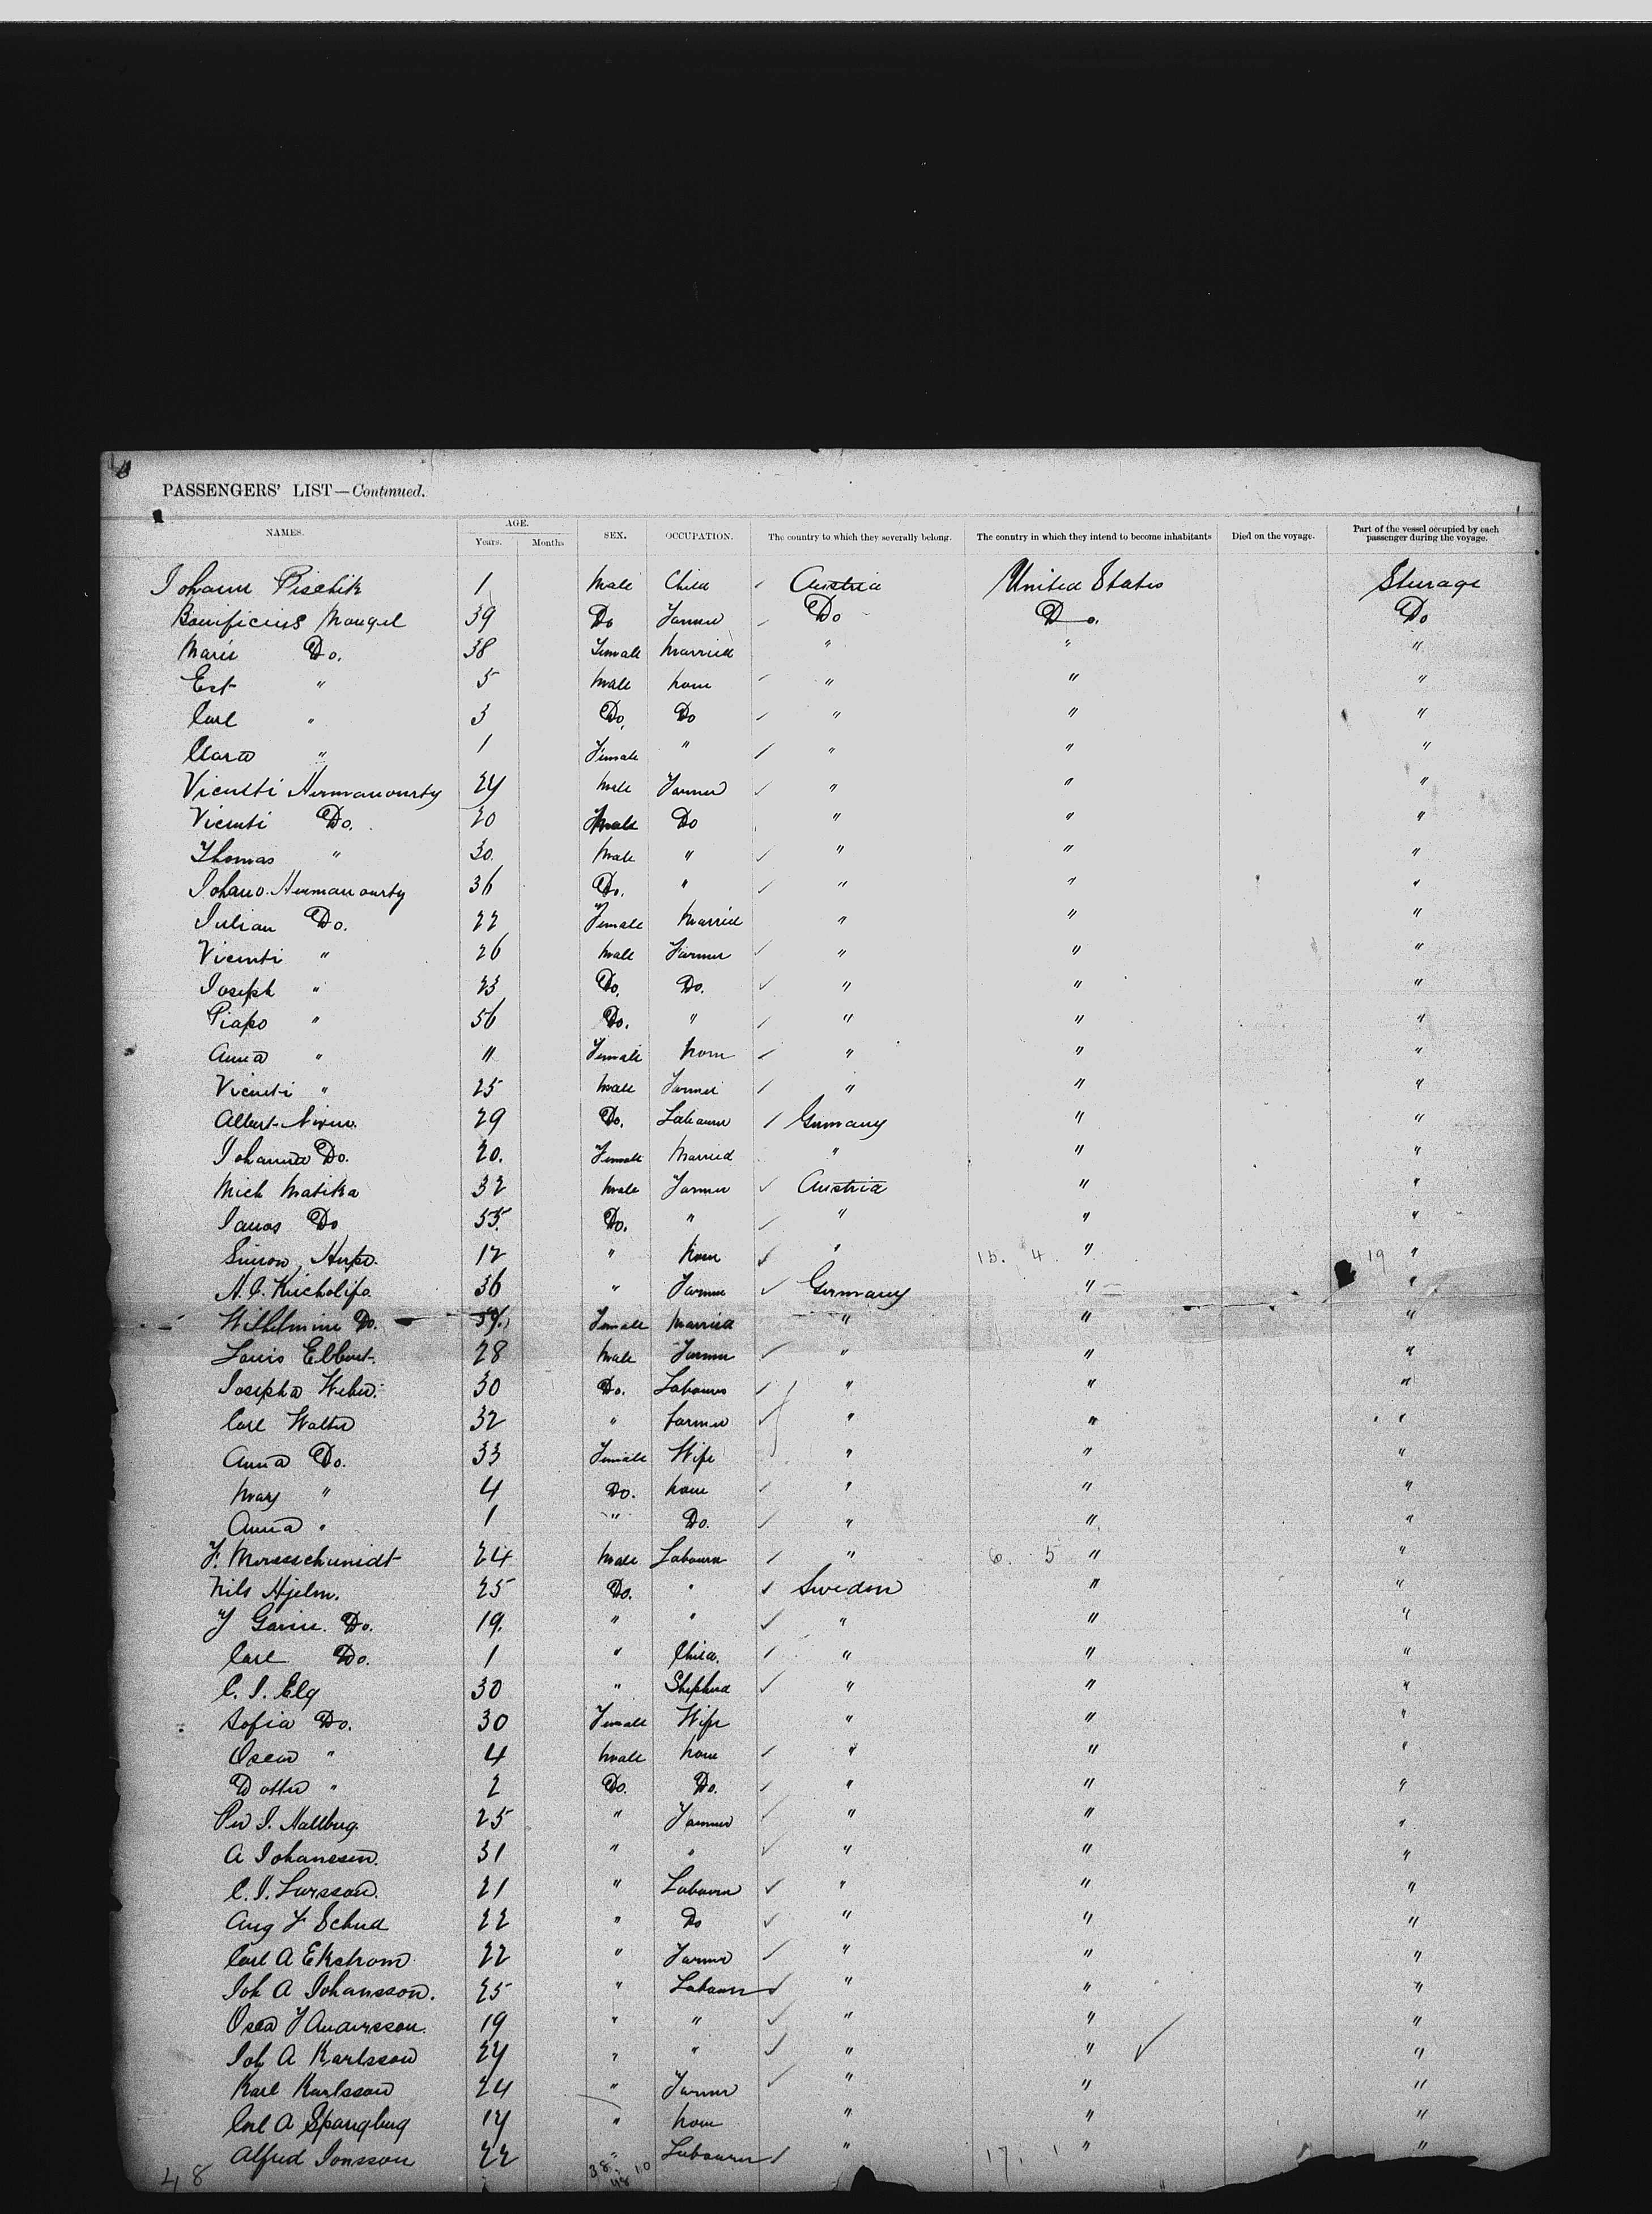 PASSENGERS' LIST—Continued.
NAMES. AGE. Years. Months. SEX. OCCUPATION. The country to which they severally belong. The country in which they intend to become inhabitants Died on the voyage. Part of the vessel occupied by each passenger during the voyage.
Johann Pischik 1 Male Child Austria United States Sturage
Bonificius Mougel 39 Do Farmer Do Do. Do
Marie Do. 38 Female Married " " "
Est " 5 Male None " " "
Carl " 3 Do. Do " " "
Clara " 1 Female " " " "
Vicenti 24 Male Farmer " " "
Vicenti Do. 20 Do " " "
Thomas " 30. Male " " " "
36 Do. " " " "
Julian Do. 22 Female Married " " "
Vicenti " 26 Male Farmer " " "
Joseph " 23 Do. Do. " " "
Piapo " 56 Do. " " " "
Anna " 11 Female None " " "
Vicenti " 25 Male Farmer " " "
Albert 29 Do. Labourer Germany " "
Johanna Do. 20. Female Married " " "
Mich Matika 32 Male Farmer Austria " "
Janos Do 55. Do. " " " "
Simon Hupo. 12 " None " 15. 4. " 19 "
36 " Farmer Germany " "
Wilhelmine Do. Female Married " " "
Louis Ebbert. 28 Male Farmer " " "
Josepha Weber. 30 Do. Labourer " " "
Carl Walter 32 " Farmer " " "
Anna Do. 33 Female Wife " " "
Mary " 4 Do. None " " "
Anna " 1 " Do. " " "
F. Messschmidt 24 Male Labourer " 6. 5 " "
Nils Hjelm. 25 Do. " Sweden " "
Do. 19. " " " " "
Carl Do. 1 " Child. " " "
C. J. Elg 30 " Shepherd " " "
Sofia Do. 30 Female Wife " " "
Oscar " 4 Male None " " "
Dotter " 2 Do. Do. " " "
Per J. Hallberg. 25 " Farmer " " "
A Johanesen. 31 " " " " "
C. J. Larsson. 21 " Labourer " " "
Aug F Schud 22 " Do " " "
Carl A Ekstrom 22 " Farmer " " "
Joh A Johansson. 25 " Labourer " " "
Oscar F Andersson. 19 " " " " "
Joh A Karlsson 24 " " " " "
Karl Karlsson 24 " Farmer " " "
Carl A Spangberg 17 " None " " "
Alfred Jonsson 22 " Labourer " 17. 1 " "
48 38. 10
48